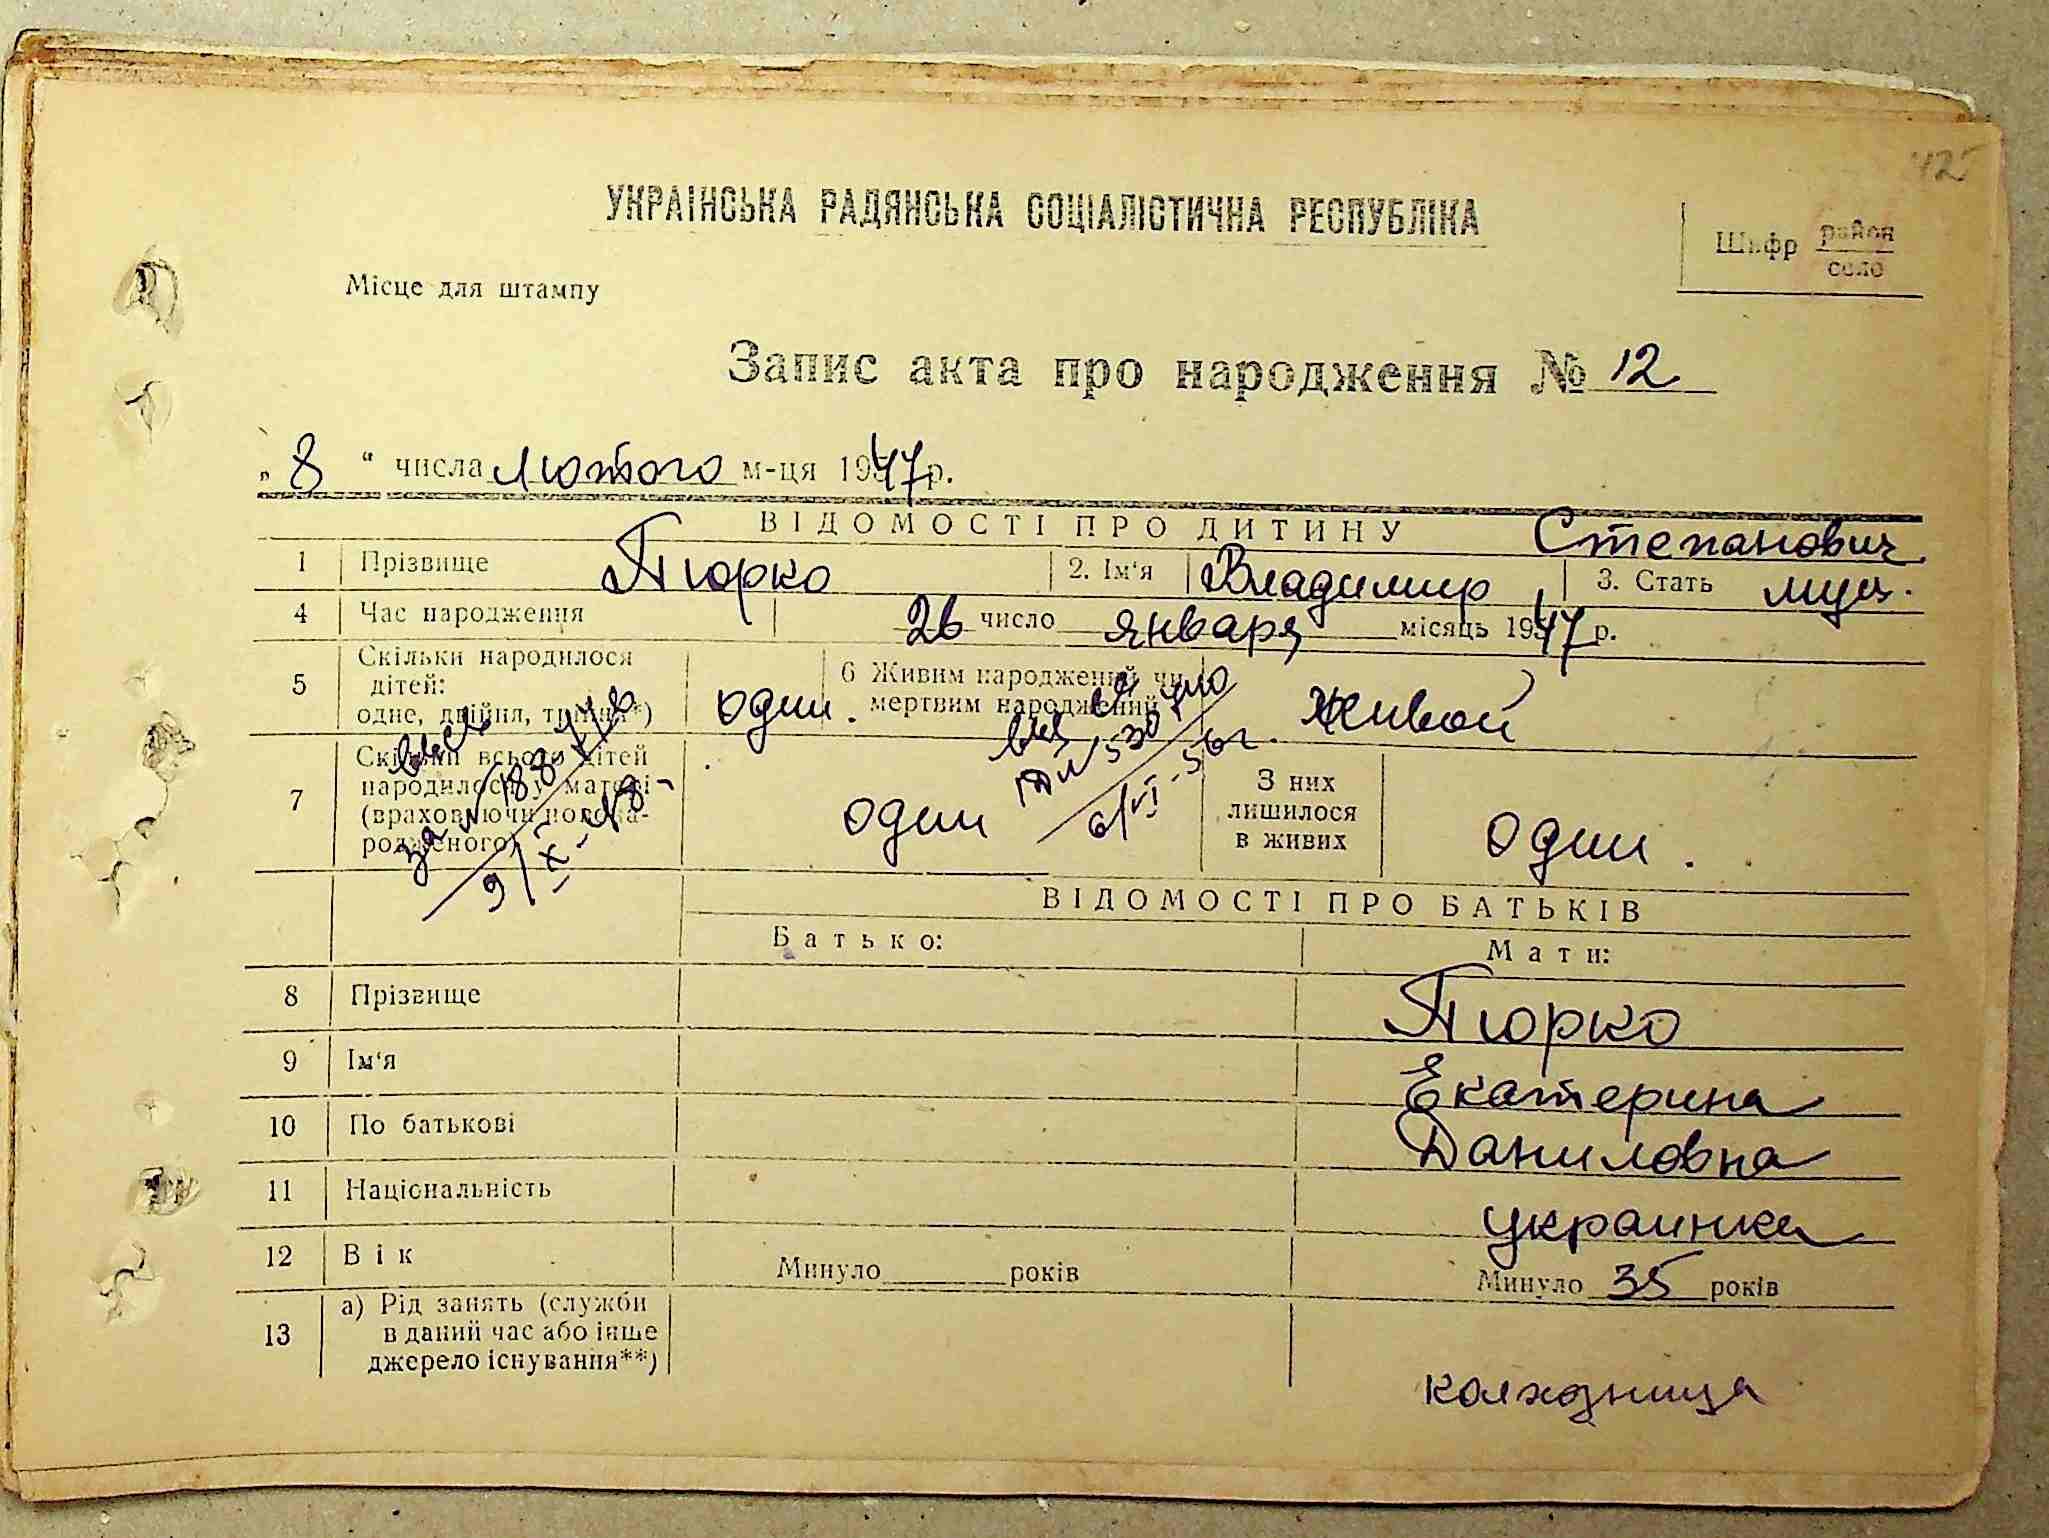 42
УКРАЇНСЬКА РАДЯНСЬКА СОЦІАЛІСТИЧНА РЕСПУБЛІКА
Шифр район
село
Місце для штампу
Запис акта про народження № 12
„ 8 “ числа лютого м-ця 1947 р.
ВІДОМОСТІ ПРО ДИТИНУ Степанович
1 Прізвище Тюрко 2. Ім‘я Владимир 3. Стать муж.
4 Час народження 26 число января місяць 1947 р.
5 Скільки народилося дітей: одне, двійня, трійня*) один. 6 Живим народжений чи мертвим народжений живой
7 Скільки всього дітей народилося у матері (враховуючи новонародженого) один З них лишилося в живих один.
9/X-48
6/VI-56 г.
ВІДОМОСТІ ПРО БАТЬКІВ
Батько: Мати:
8 Прізвище Тюрко
9 Ім‘я Екатерина
10 По батькові Даниловна
11 Національність украинка
12 Вік Минуло років Минуло 35 років
13 а) Рід занять (служби
в даний час або інше
джерело існування**)
колхозница